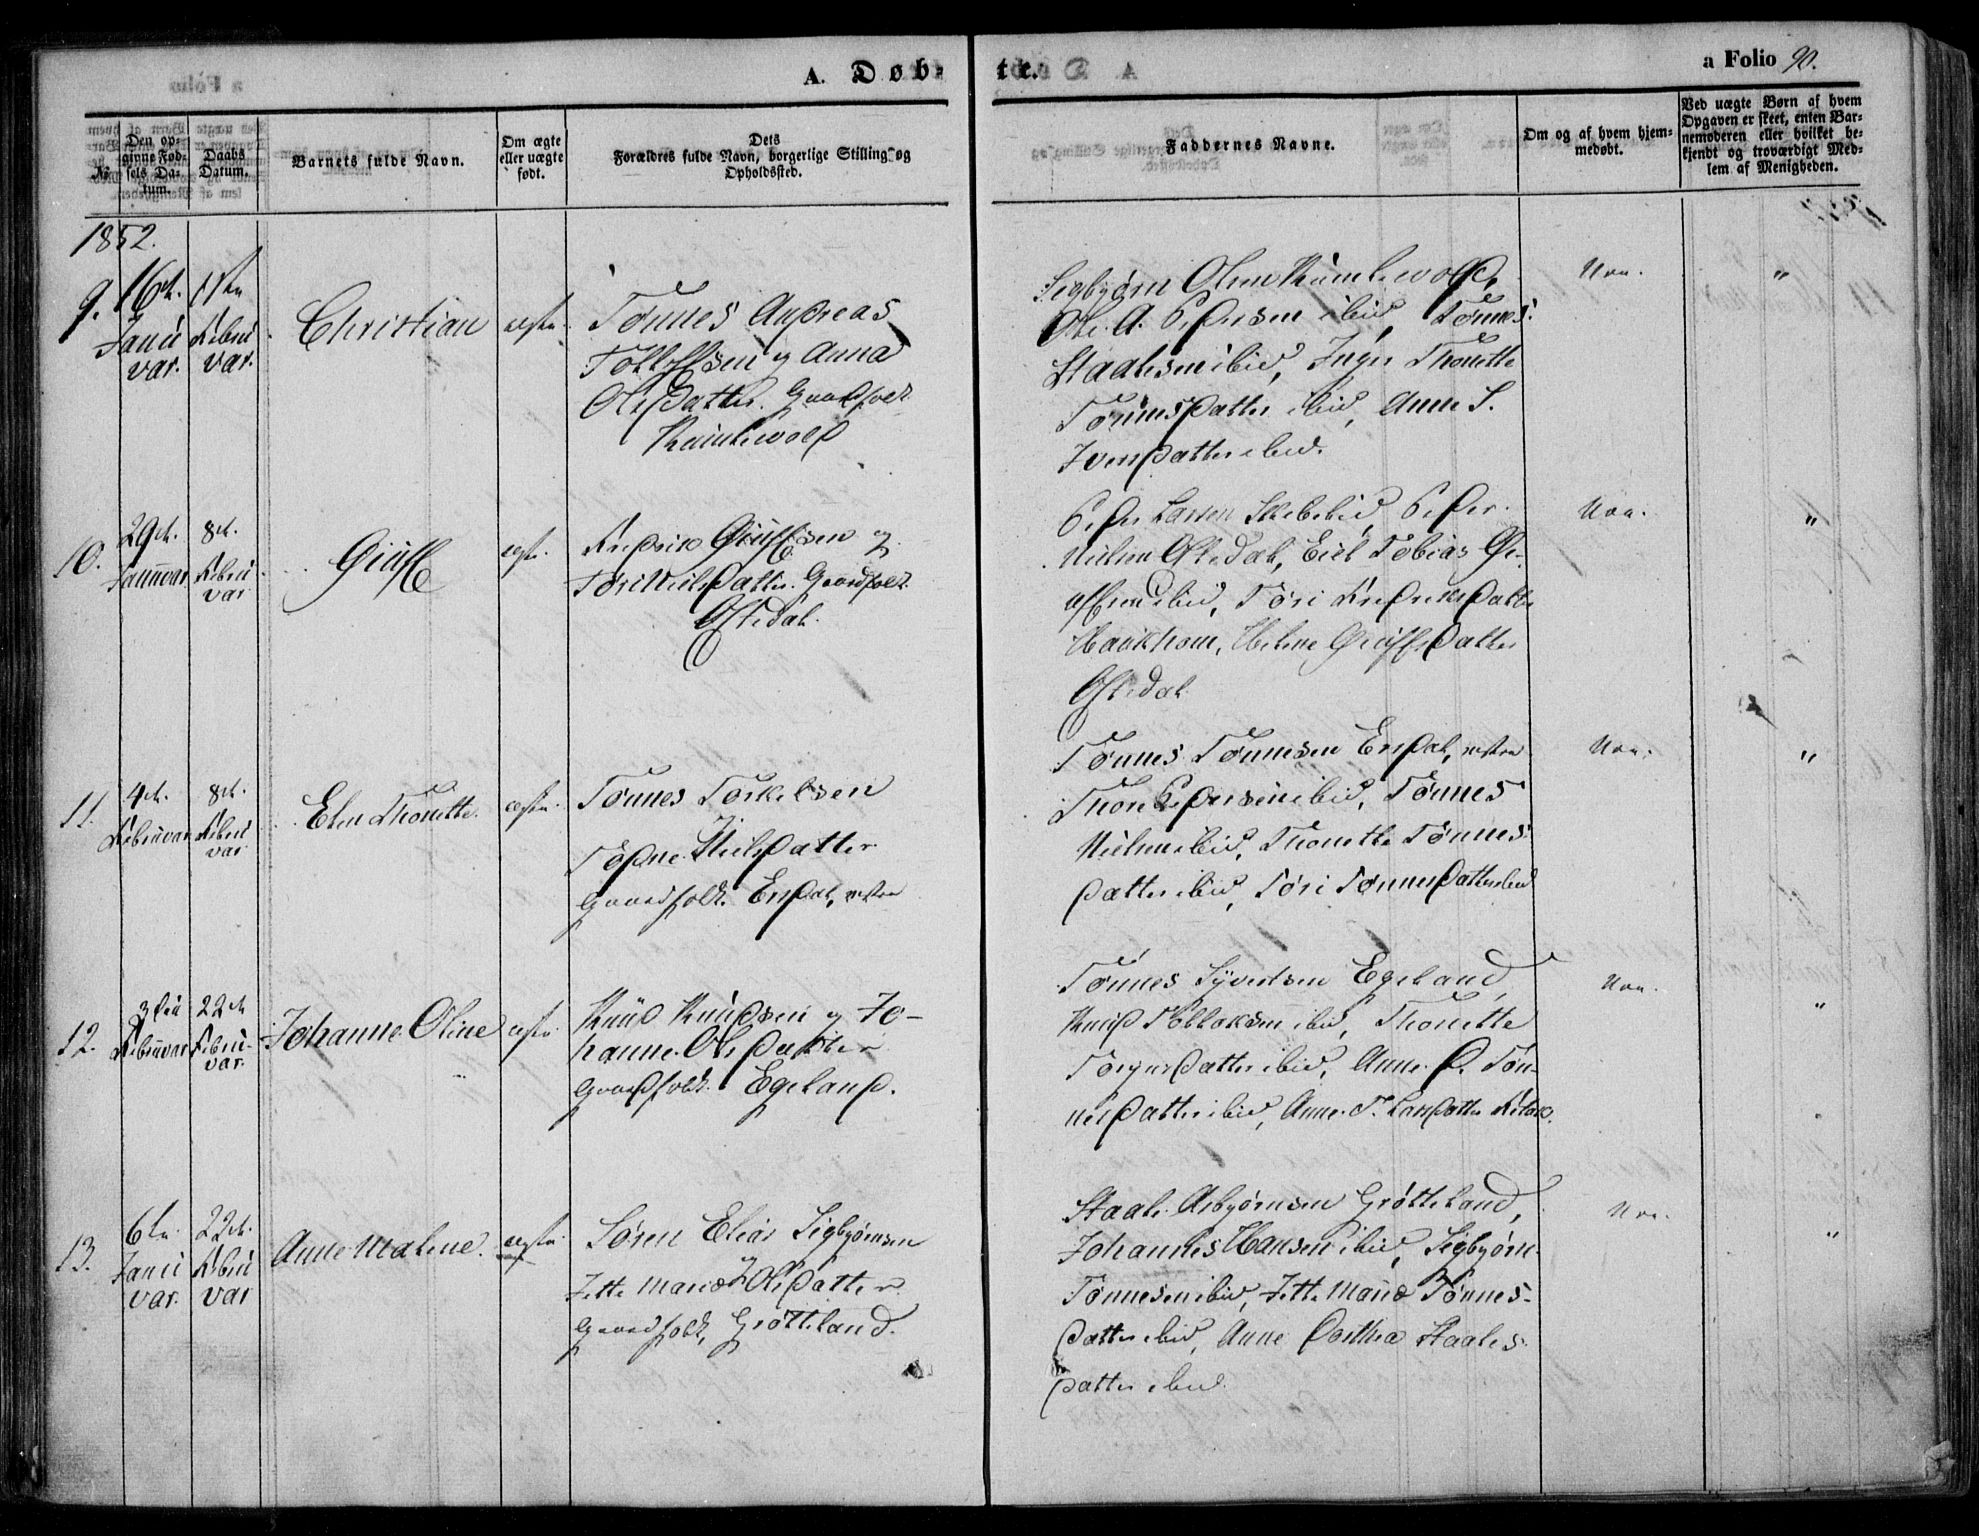 A. Døb-
te.
a Folio 90.
No
Den opginne Fødsels Datum.
Daabs Datum.
Barnets fulde Navn.
Om ægte eller uægte født.
Dets Forældres fulde Navn, borgerlige Stilling og Opholdssted.
Faddernes Navne.
Om og af hvem hjemmedøbt.
Ved uægte Børn af hvem Opgaven er skeet, enten Barnemoderen eller hvilket bekjendt og troværdigt Medlem af Menigheden.
1852.
9. 16de Januvar. 1ste Februvar. Christian ægte.
Tønnes Andreas
Tollefsen og Anna
Olesdatter. Gaardfolk
Sigbjørn Olsen
Ole A. Pedersen ibid, Tønnes
Staalesen ibid, Inger Thonette
Tønnesdatter ibid, Anne S.
Iversdatter ibid.
Nei. "
10. 29de Januvar. 8de Februvar ægte.
Fredrik og
Tøri Nielsdatter. Gaardfolk
Oftedal.
Peder Larsen Peder
Nielsen Oftedal, Eiel Tobias
ibid, Tøri Fredriksdatter
Haukhom, Helene
Oftedal
Nei. "
11. 4de Februvar 8de Februvar Elen Thonette. ægte.
Tønnes Torkelsen
Nielsdatter
Gaardfolk. Ersdal, vestre
Tønnes Tønnesen Ersdal, vestre
Thore Pedersen ibid, Tønnes
Nielsen ibid, Thonette Tønnes
datter ibid, Tøri Tønnesdatter ibid
Nei. "
12. 3die Februvar 22de Februvar. Johanne Oline ægte
Knud Knudsen og Jo-
hanne Olesdatter
Gaardfolk. Egeland.
Tønnes Syvertsen Egeland,
Knud Tollaksen ibid, Thonette
Torgersdatter ibid, Anne O. Tøn-
nesdatter ibid, Anne T. Larsdatter
Nei. "
13. 6te Januvar. 22de Februvar Anne Malene. ægte.
Søren Elias Sigbjørnsen
og
Jette Maria Olsdatter
Gaardfolk, Grøtteland.
Staale Asbjørnsen Grøtteland,
Johannes Hansen ibid, Sigbjørn
Tønnesen ibid, Jette Maria Tønnes-
datter ibid, Anne Dorthea Staales
datter ibid.
Nei. "